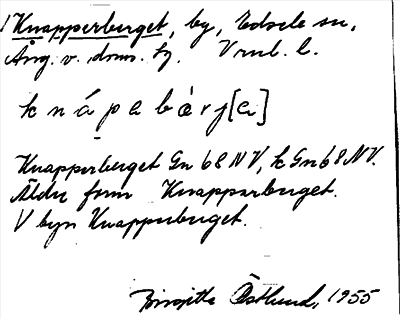 Knapperberget, by, Edsele sn,
Ång. v. doms. hg. Vrml. l.
k n á p e b à r j [e]
Knapperberget Gn 68 NV, k Gn 68 NV.
Äldre form Knapparberget.
V byn Knapperberget.
Birgitta Östlund, 1955